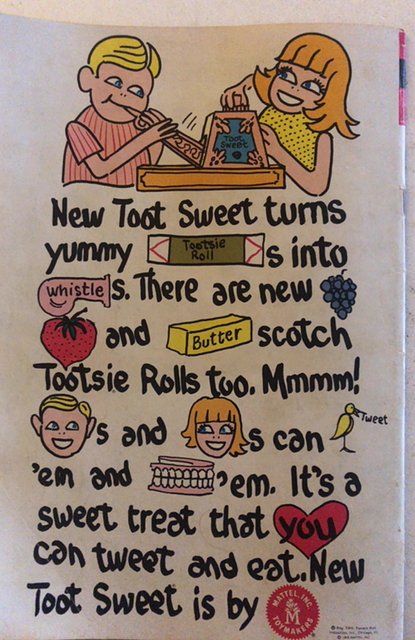 Toot
Sweet
New Toot Sweet turns
yummy Tootsie Roll s into
whistle s. There are new
and Butter scotch
Tootsie Rolls too. Mmmm!
s and s can Tweet
'em and 'em. It's a
sweet treat that you
can tweet and eat. New
Toot Sweet is by MATTEL, INC. TOYMAKERS